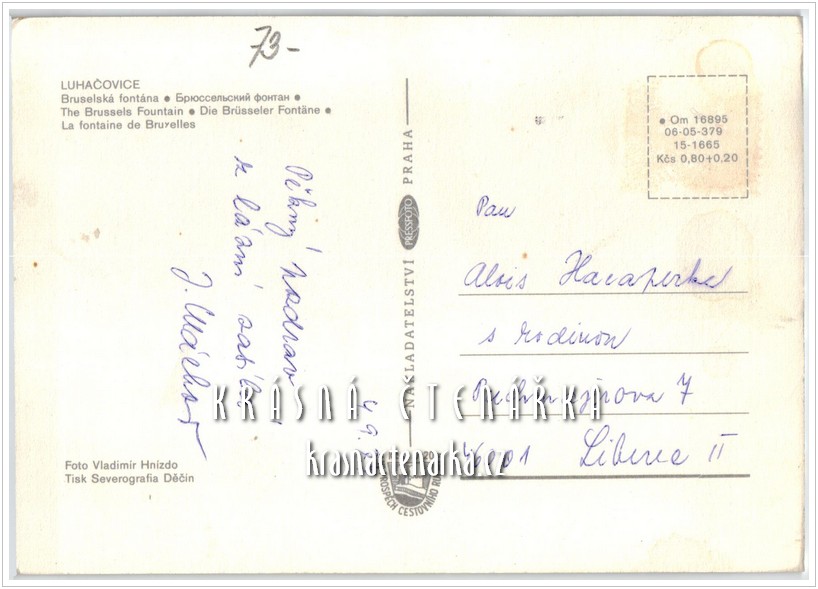 73-
LUHAČOVICE
Bruselská fontána ● Брюссельский фонтан ●
The Brussels Fountain ● Die Brüsseler Fontäne ●
La fontaine de Bruxelles
Pěkný pozdrav
z lázní
J. Máchov
4. 9.
Foto Vladimír Hnízdo
Tisk Severografia Děčín
NAKLADATELSTVÍ PRESSFOTO PRAHA
● Om 16895
06-05-379
15-1665
Kčs 0,80+0,20
Pan
Alois
s rodinou
7
46001 Liberec II
KRÁSNÁ ČTENÁŘKA
krasnactenarka.cz
20
PROSPĚCH CESTOVNÍHO